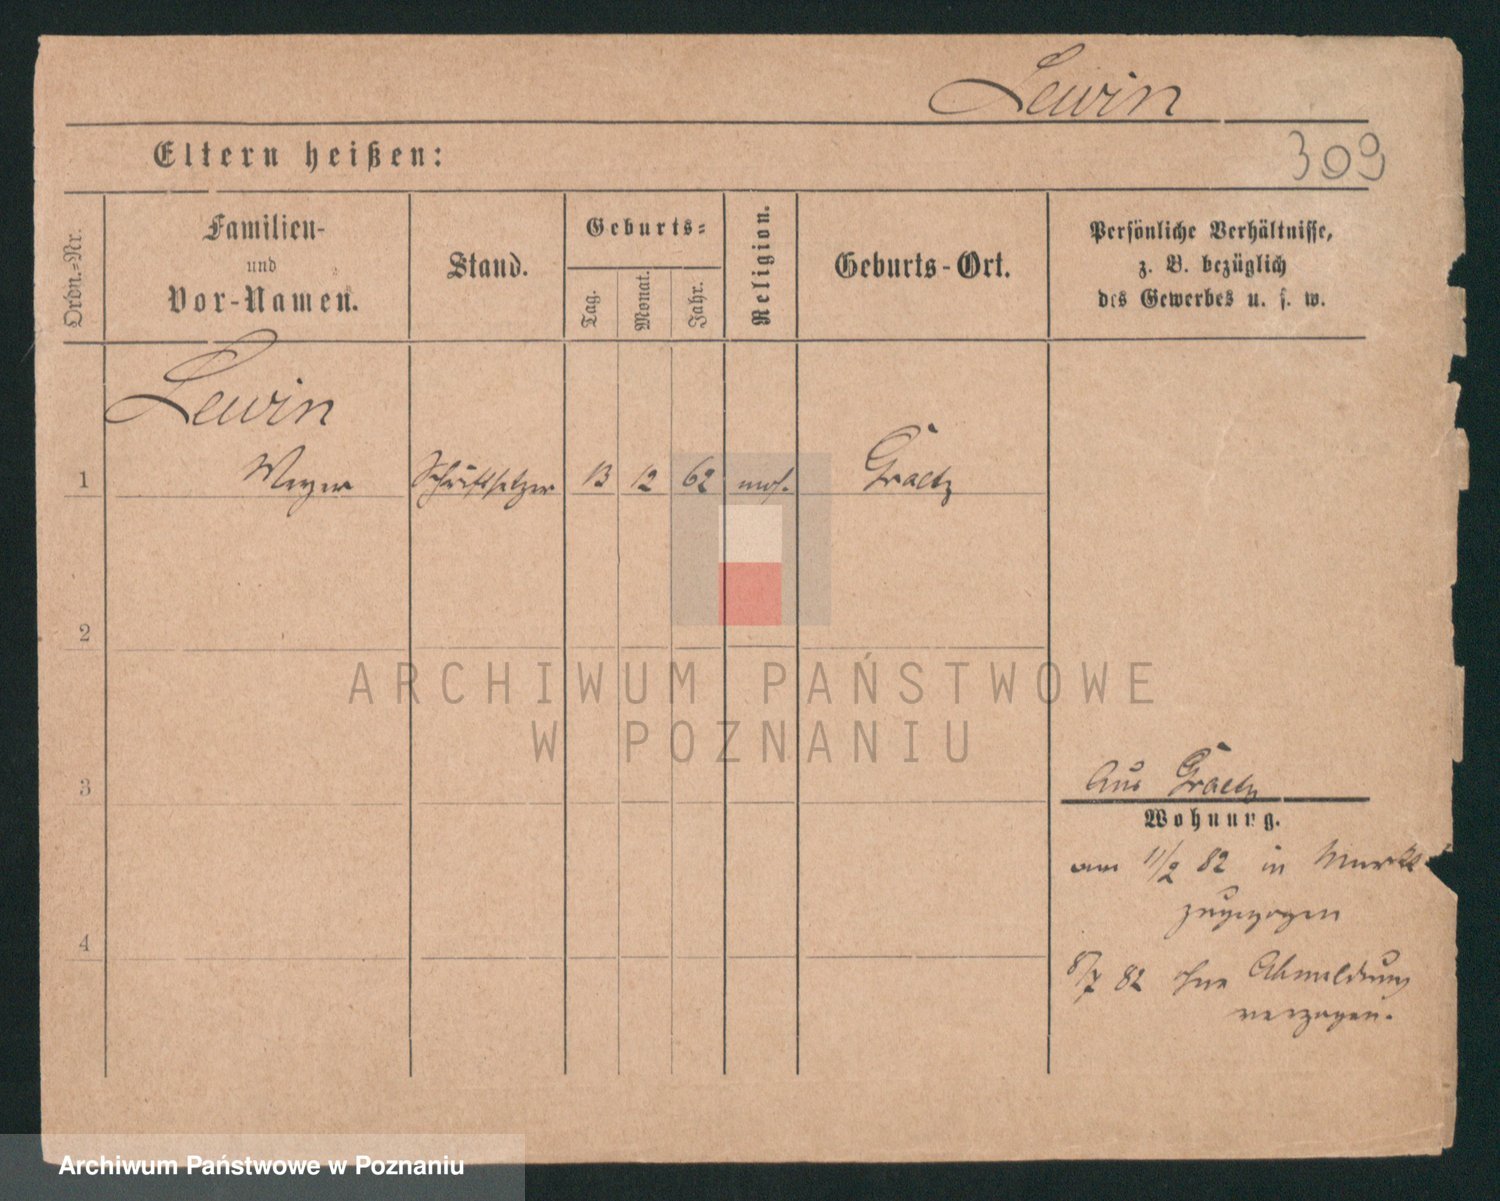 Lewin
309
Eltern heißen:
Ordn.-Nr.
Familien-
und
Vor-Namen.
Stand.
Geburts-
Tag.
Monat.
Jahr.
Religion.
Geburts-Ort.
Persönliche Verhältnisse,
z. B. bezüglich
des Gewerbes u. s. w.
Lewin
1 Meyer Schriftsetzer 13 12 62 mos. Graetz
2
ARCHIWUM PAŃSTWOWE
W POZNANIU
3
Aus Graetz
Wohnung.
am 11/2 82 in
zugezogen
4
8/7 82 ohne Abmeldung
verzogen.
Archiwum Państwowe w Poznaniu